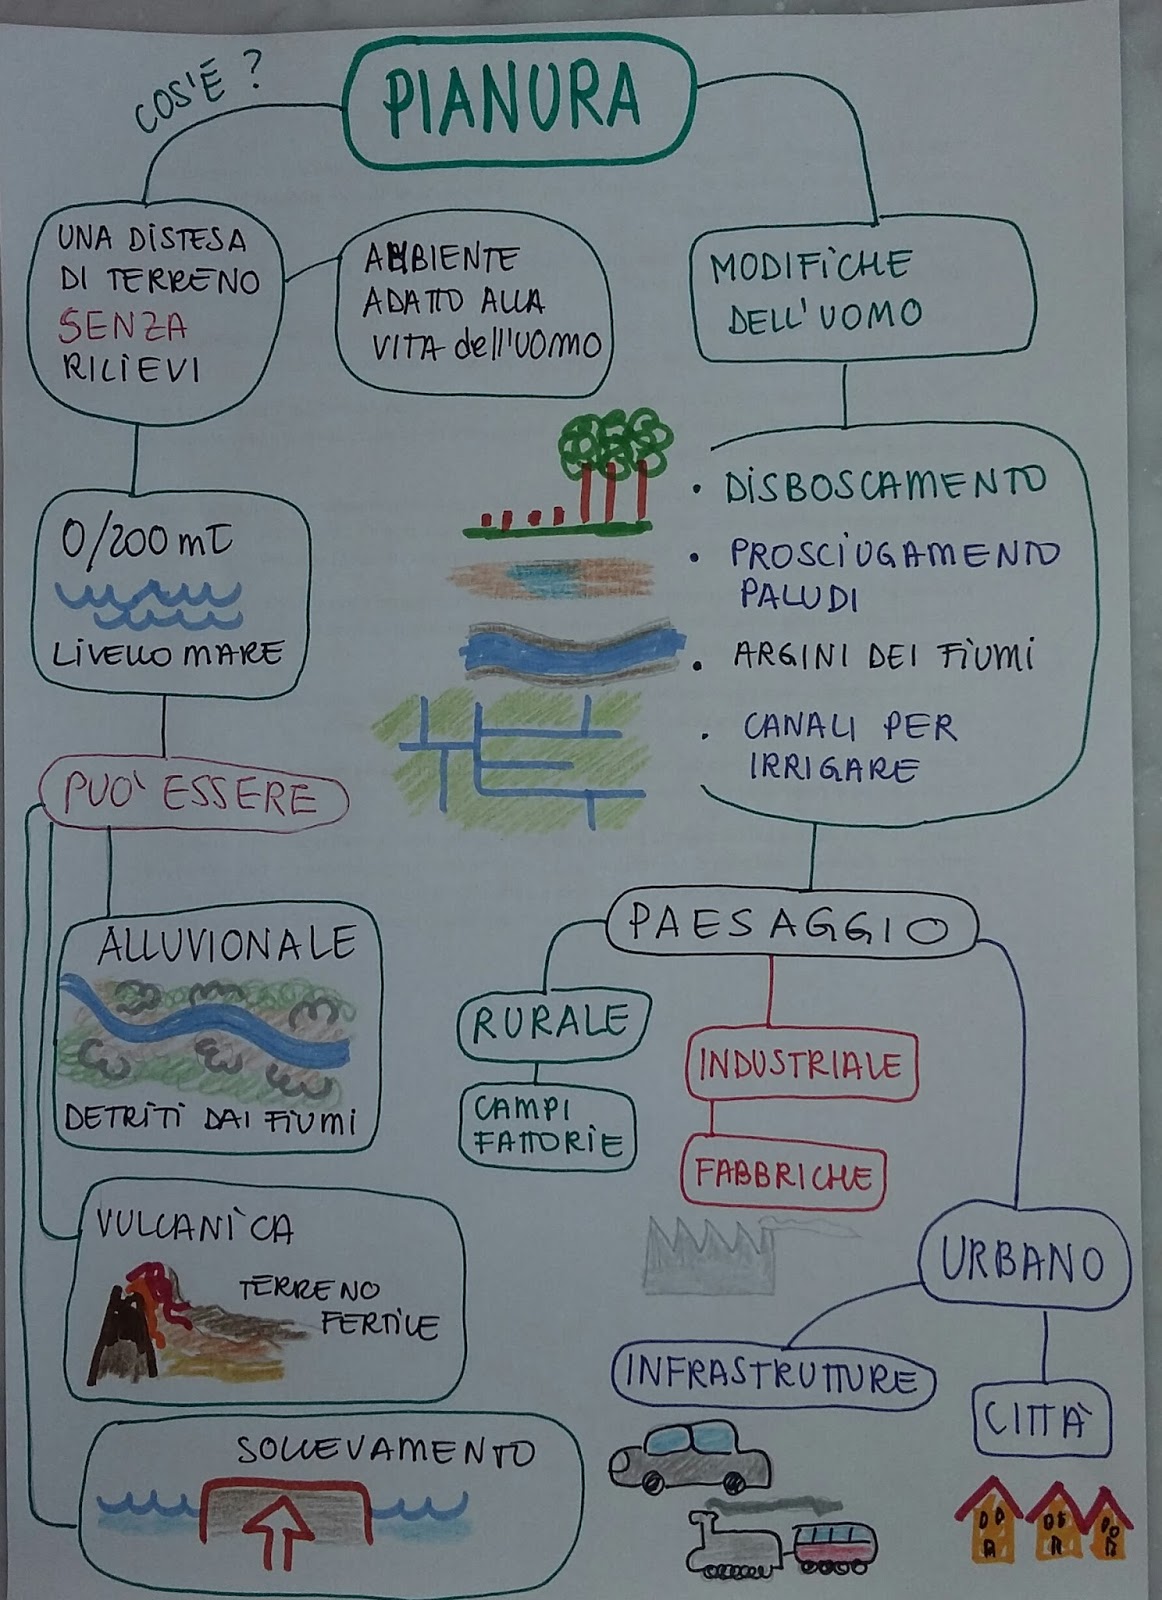 PIANURA
COS'È ?
UNA DISTESA
DI TERRENO
SENZA
RILIEVI
AMBIENTE
ADATTO ALLA
VITA dell'UOMO
MODIFICHE
DELL'UOMO
0/200 mt
LIVELLO MARE
• DISBOSCAMENTO
• PROSCIUGAMENTO
PALUDI
• ARGINI DEI FIUMI
• CANALI PER
IRRIGARE
PUO' ESSERE
ALLUVIONALE
DETRITI DAI FIUMI
VULCANICA
TERRENO
FERTILE
SOLLEVAMENTO
PAESAGGIO
RURALE
CAMPI
FATTORIE
INDUSTRIALE
FABBRICHE
URBANO
INFRASTRUTTURE
CITTÀ